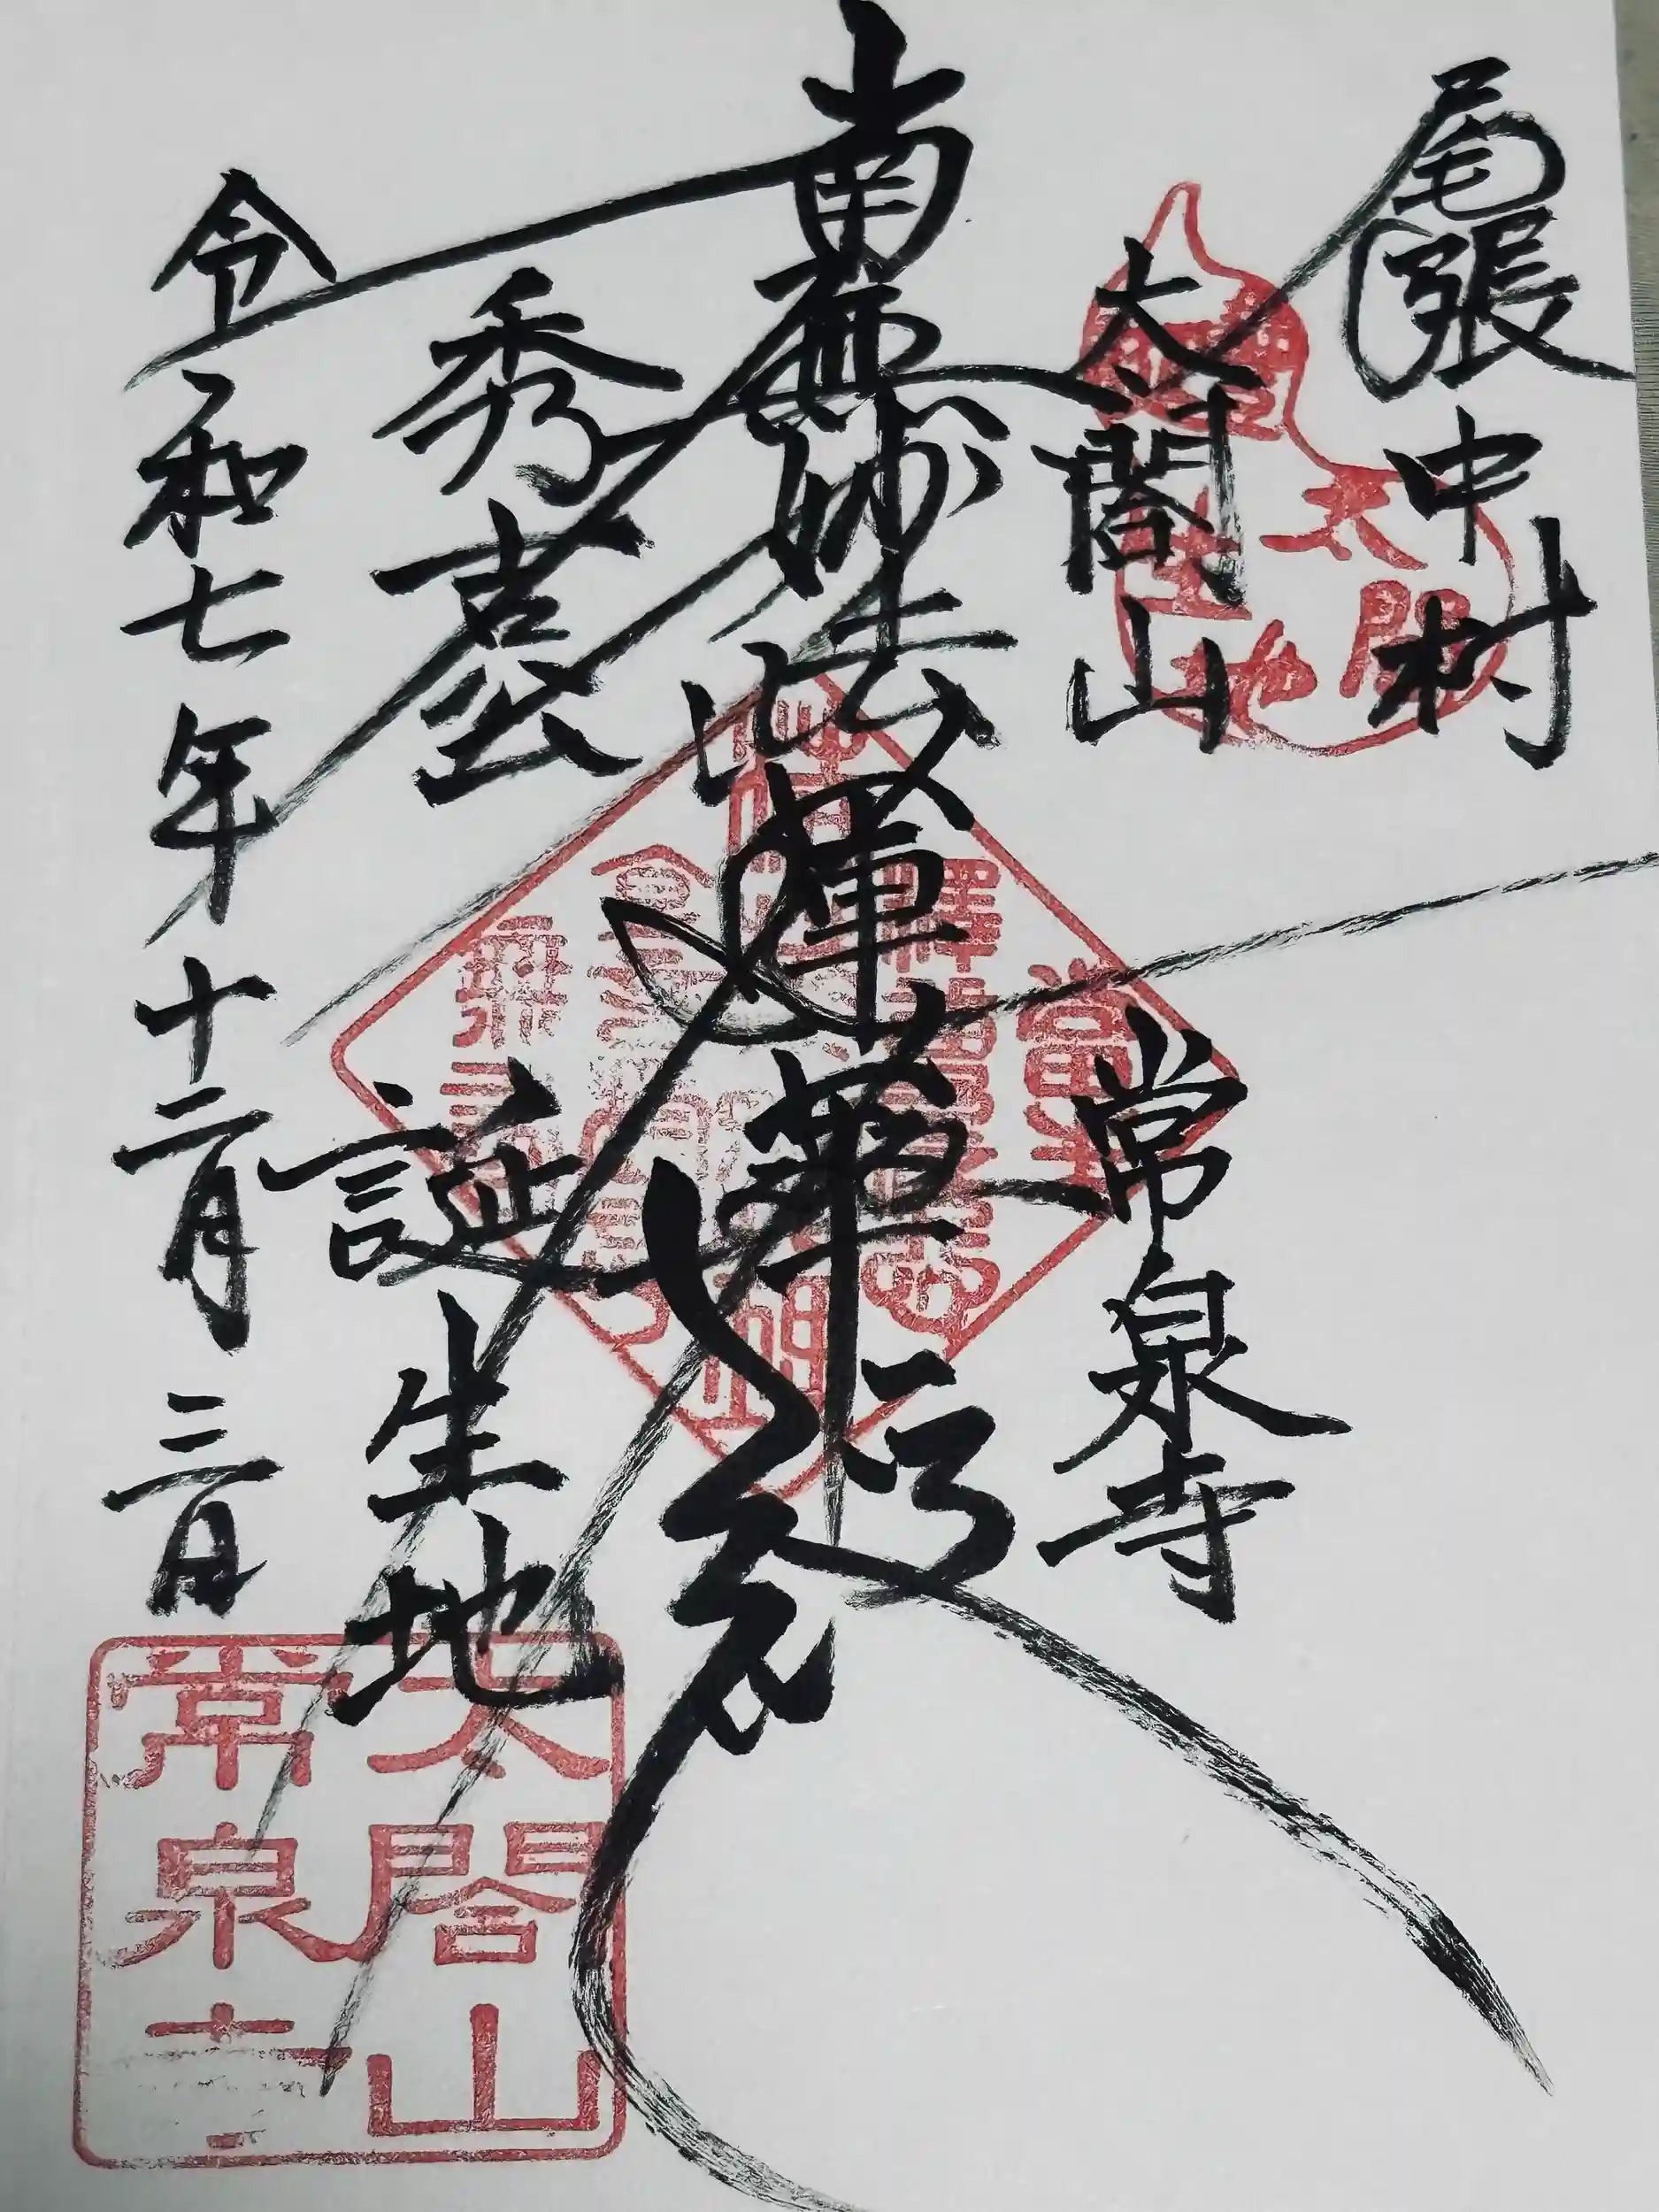 尾張中村
太閤山
常泉寺
南無妙法蓮華経
秀吉公
誕生地
令和七年十二月三日
太閤
生地
太閤山
常泉寺